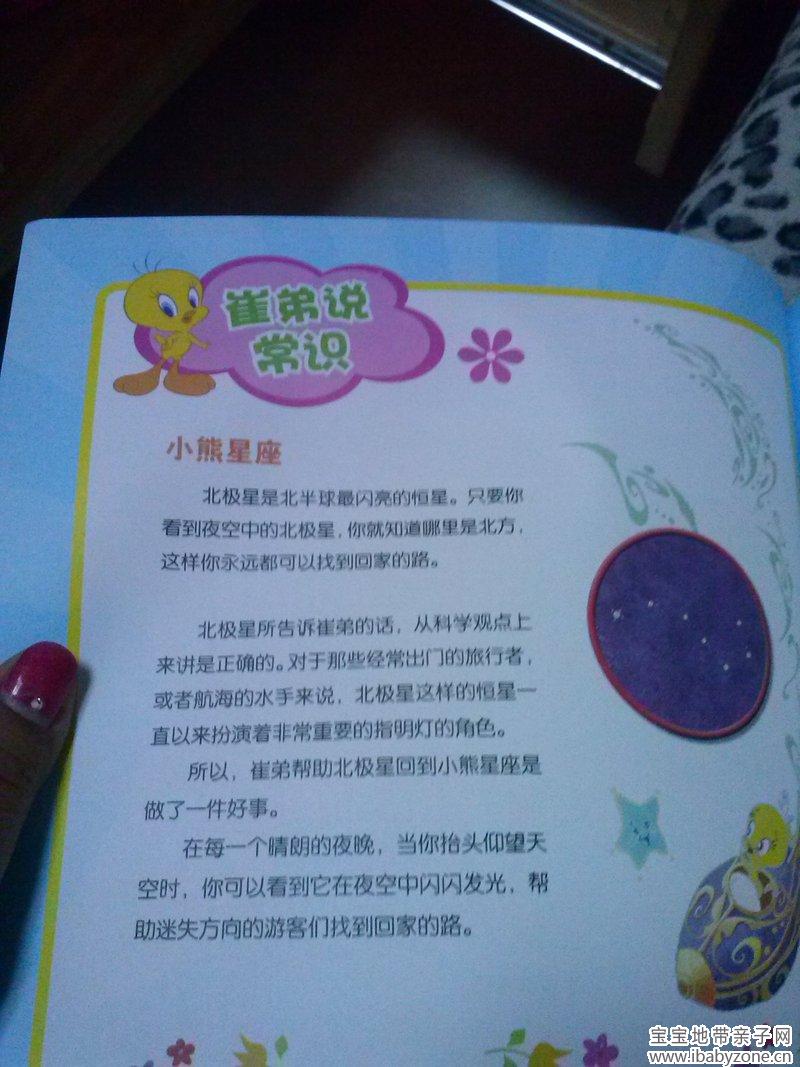 崔弟说
常识
小熊星座
北极星是北半球最闪亮的恒星。只要你
看到夜空中的北极星，你就知道哪里是北方，
这样你永远都可以找到回家的路。
北极星所告诉崔弟的话，从科学观点上
来讲是正确的。对于那些经常出门的旅行者，
或者航海的水手来说，北极星这样的恒星一
直以来扮演着非常重要的指明灯的角色。
所以，崔弟帮助北极星回到小熊星座是
做了一件好事。
在每一个晴朗的夜晚，当你抬头仰望天
空时，你可以看到它在夜空中闪闪发光，帮
助迷失方向的游客们找到回家的路。
宝宝地带亲子网
www.ibabyzone.cn